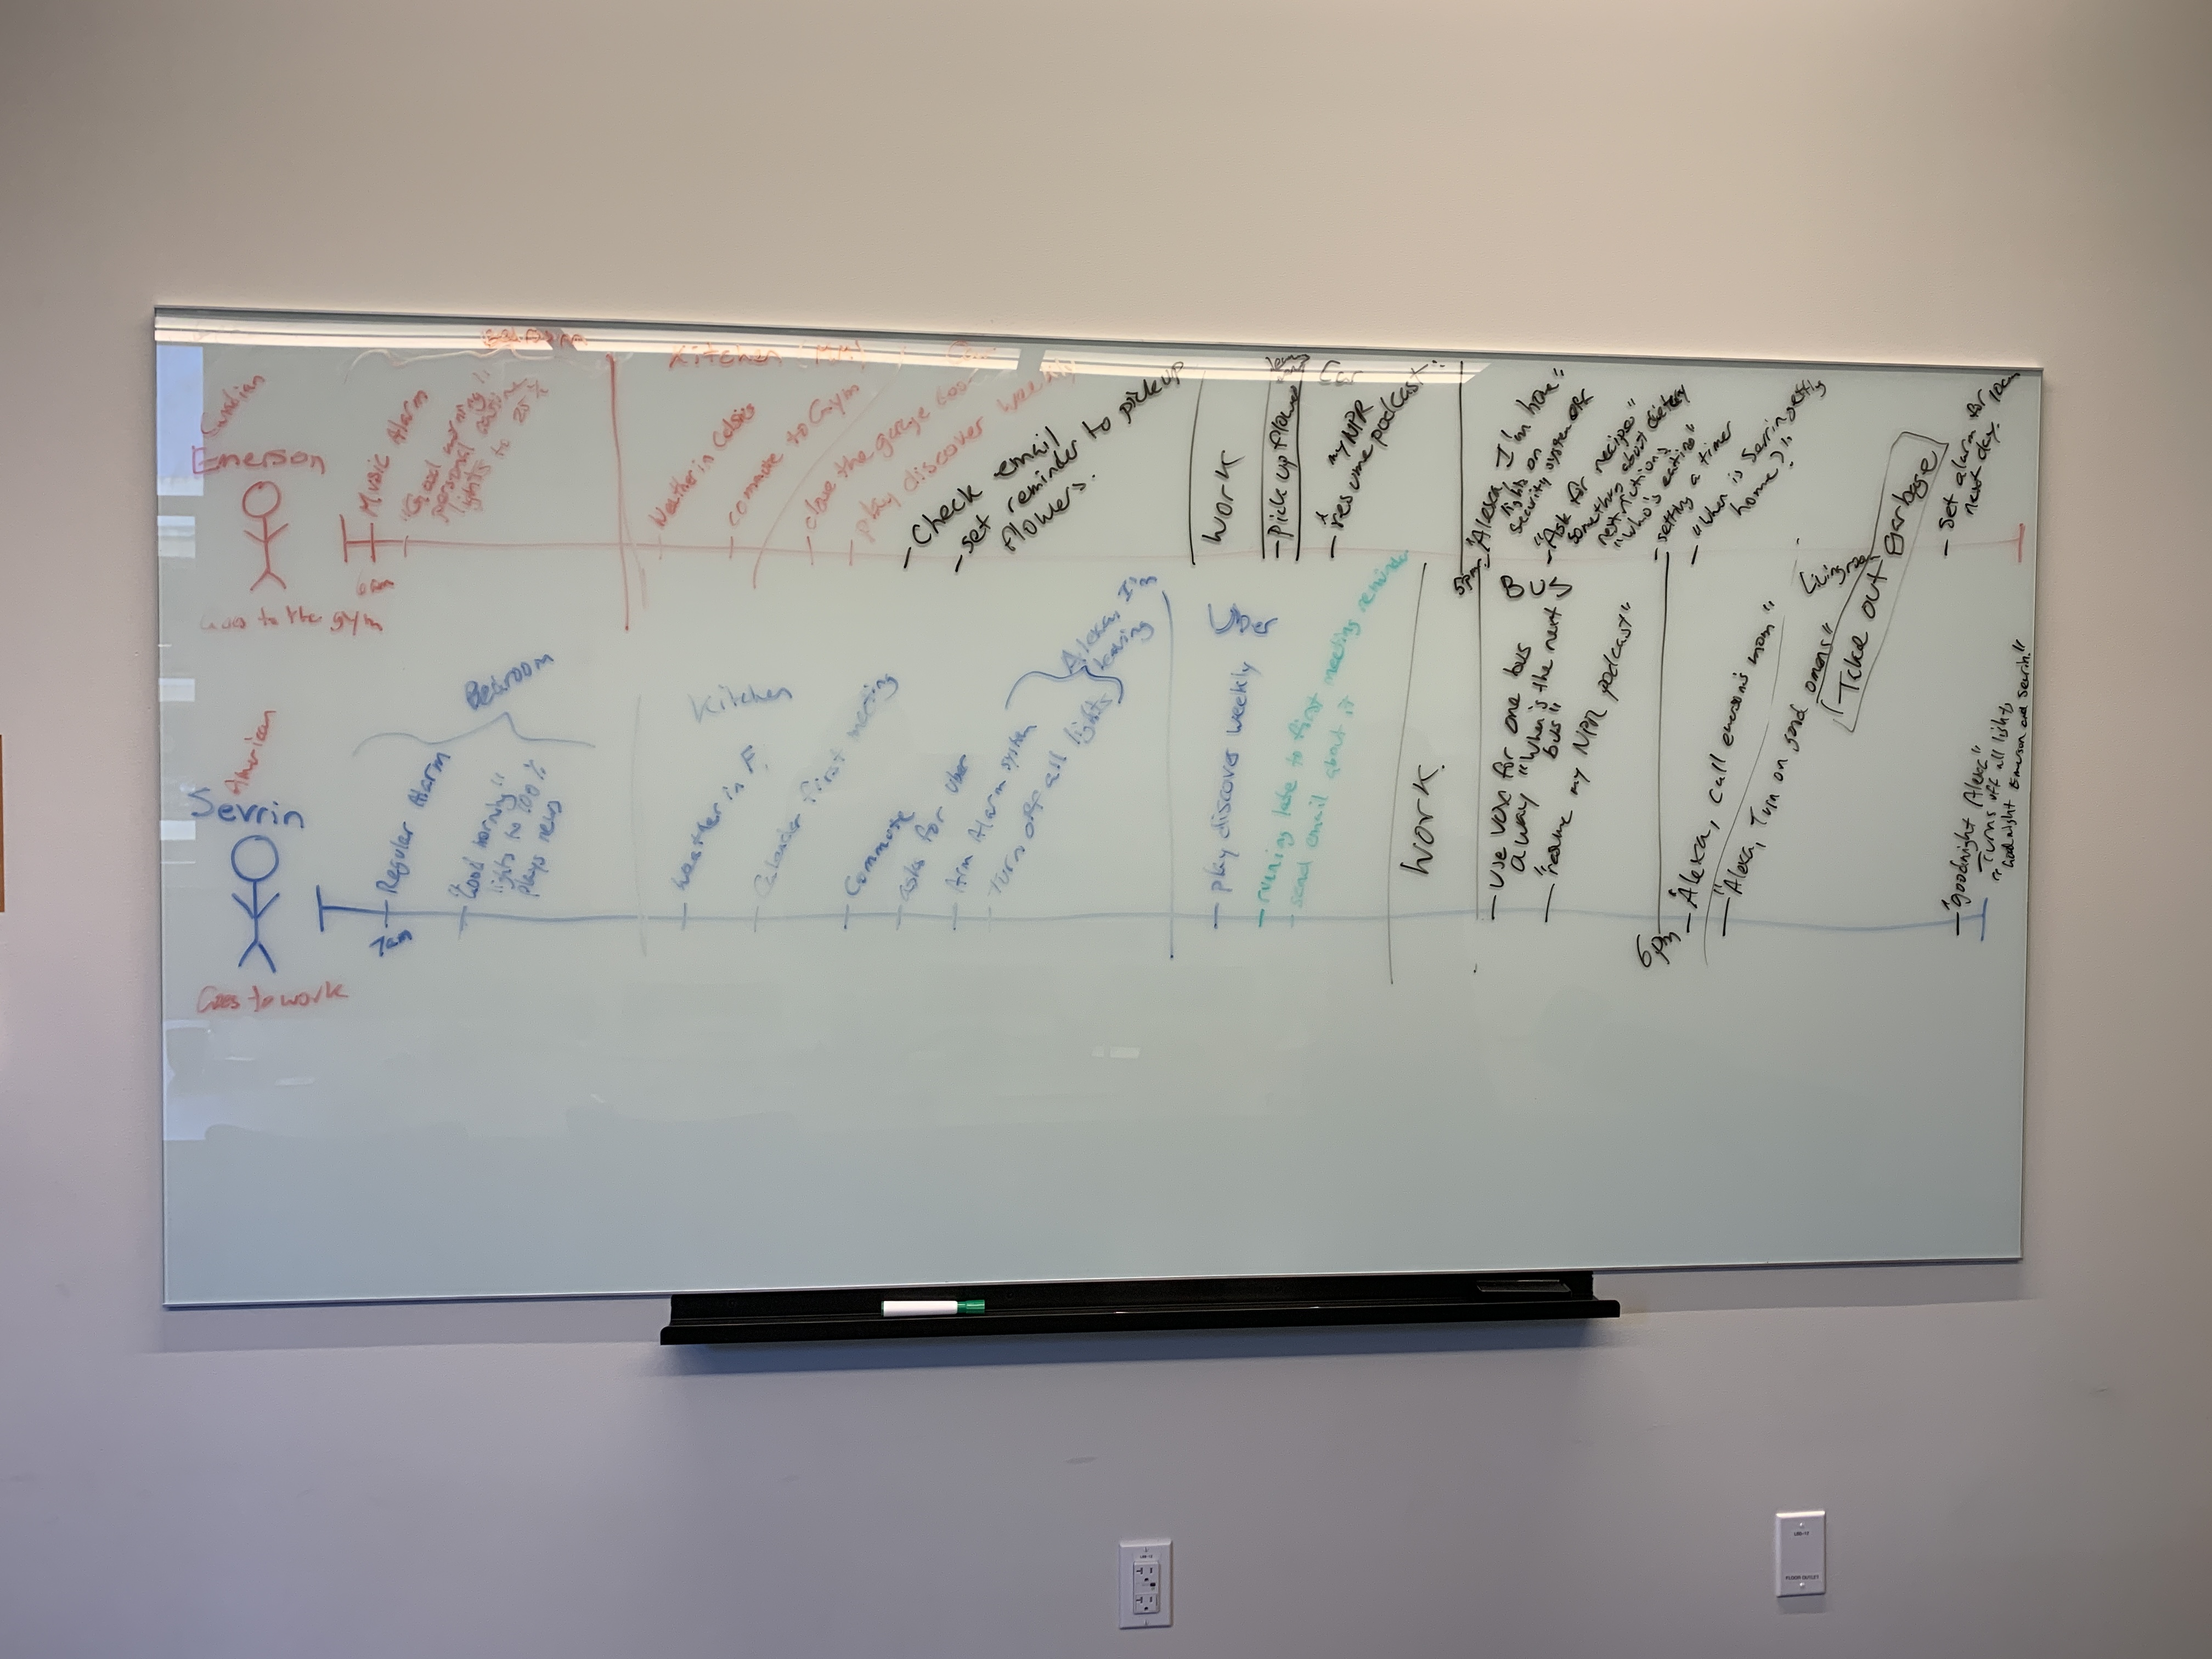 Bedroom
Kitchen
Car
Canadian
Emerson
Goes to the gym
6am
Music Alarm
"Good morning"
personal routine
lights to 25%
Weather in Celsius
commute to Gym
close the garage door
play discover weekly
- Check email
- set reminder to pickup
flowers.
Work
- pick up flowers
Car
- "resume podcast"
my NPR
5pm
- "Alexa I'm home"
lights on
security system off
- "Ask for recipes"
something about dietary
restrictions
"who's eating"
- setting a timer
- "When is Sevrin getting
home?"
Living room
Take out garbage
- Set alarm for
next day.
American
Sevrin
Goes to work
7am
Bedroom
Regular Alarm
"Good morning"
lights to 100%
plays news
Kitchen
Weather in F.
Calendar First meeting
Commute
asks for Uber
Arm Alarm system
Turn off all lights
Alexa, I'm
leaving
Uber
- play discover weekly
- running late to first meeting reminder
send email about it
Work.
BUS
- use voice for one bus
away "when is the next
bus"
- "resume my NPR podcast"
6pm
- "Alexa, call emerson's mom"
- "Alexa, Turn on good omens"
- "goodnight Alexa"
Turns off all lights
"Goodnight Emerson and Sevrin."